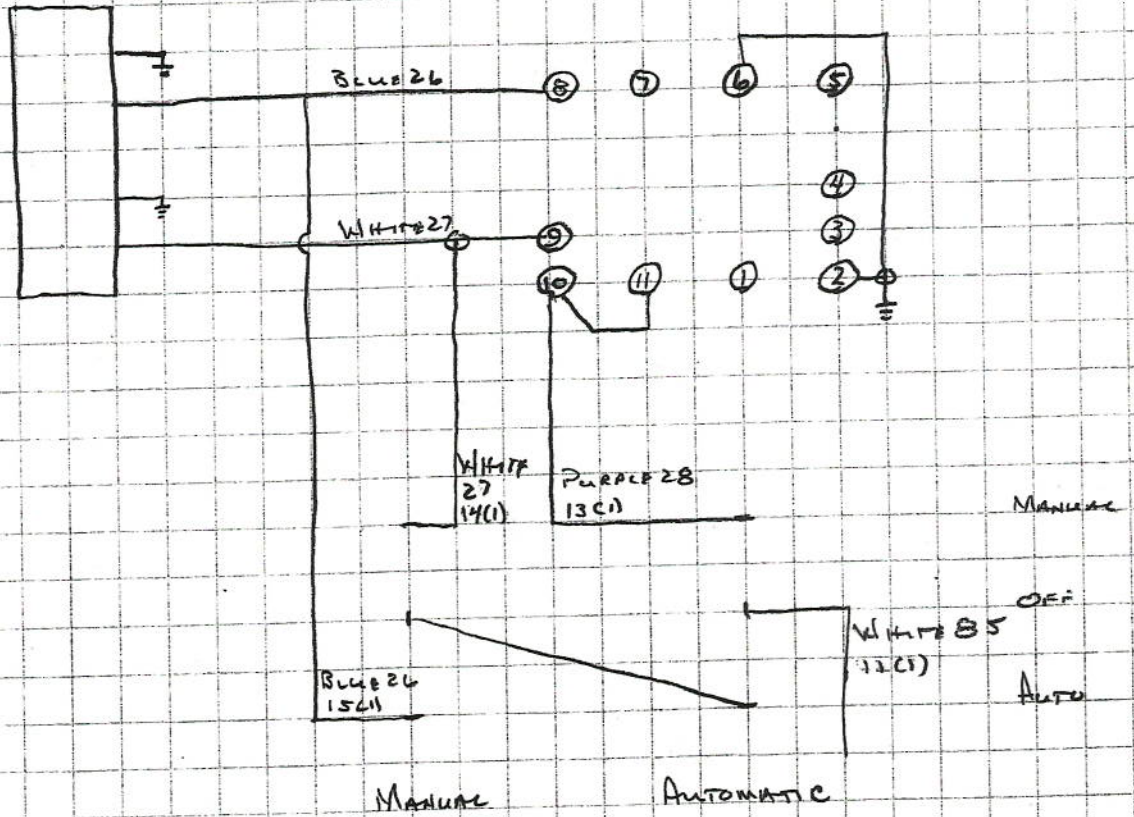 BLUE 26
8 7 6 5
4
WHITE 27
9
3
10 11 1 2
WHITE
27
14(1)
PURPLE 28
13(1)
MANUAL
OFF
WHITE 85
BLUE 26
15(1)
AUTO
MANUAL AUTOMATIC